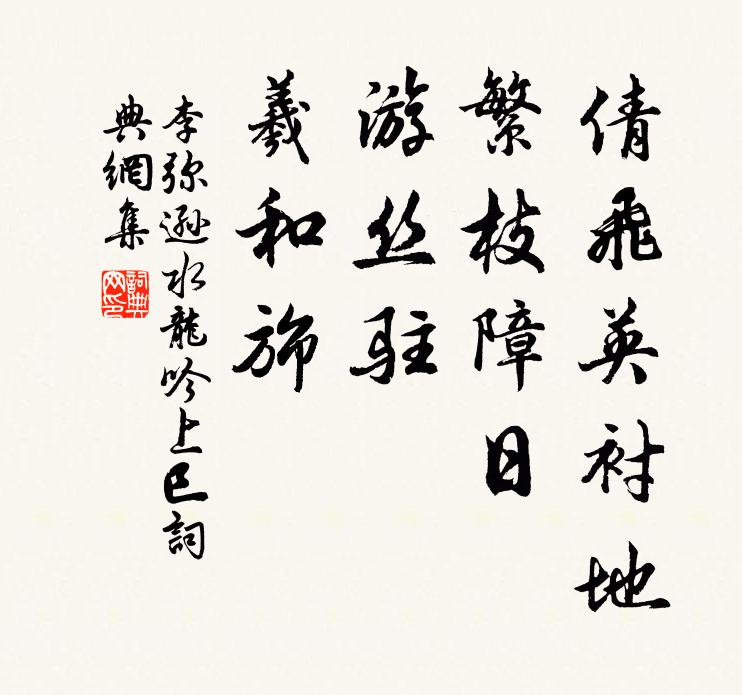 倩飛英衬地
繁枝障日
游丝駐
羲和旆
李弥遜水龍吟上巳詞
典網集
詞典網印